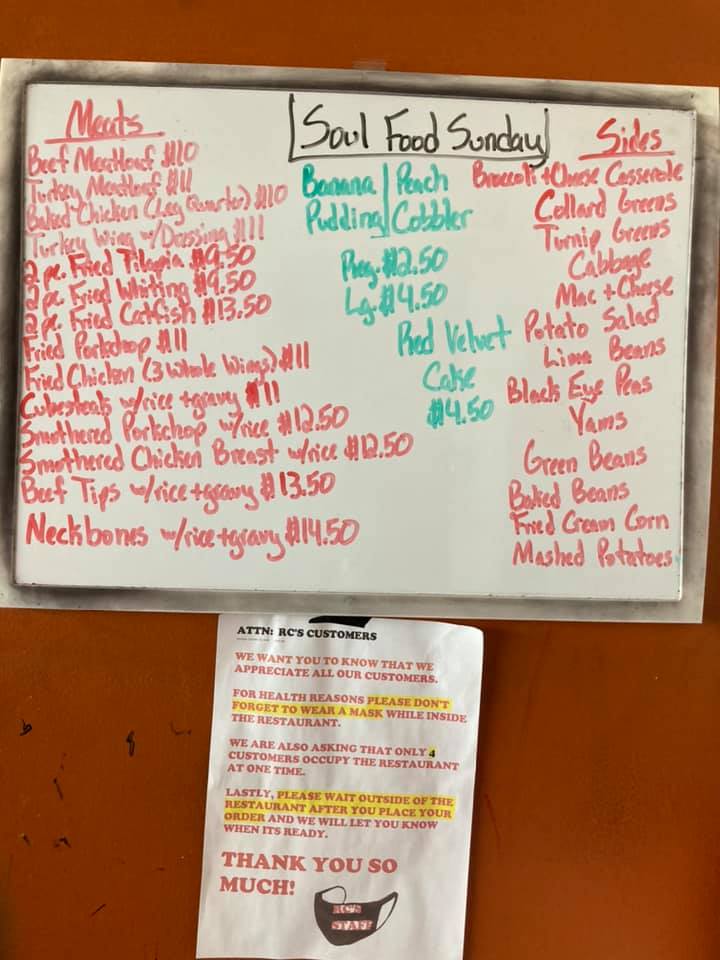 Soul Food Sunday
Meats
Beef Meatloaf $10
Turkey Meatloaf $11
Baked Chicken (Leg Quarter) $10
Turkey Wing w/Dressing $11
2 pc. Fried Tilapia $9.50
2 pc Fried Whiting $9.50
2 pc. Fried Catfish $13.50
Fried Porkchop $11
Fried Chicken (3 Whole Wings) $11
Cubesteak w/rice +gravy $11
Smothered Porkchop w/rice $12.50
Smothered Chicken Breast w/rice $12.50
Beef Tips w/rice+gravy $13.50
Neckbones w/rice+gravy $14.50
Banana | Peach
Pudding | Cobbler
Reg. $2.50
Lg. $4.50
Red Velvet
Cake
$4.50
Sides
Broccoli + Cheese Casserole
Collard Greens
Turnip Greens
Cabbage
Mac + Cheese
Potato Salad
Lima Beans
Black Eye Peas
Yams
Green Beans
Baked Beans
Fried Cream Corn
Mashed Potatoes
ATTN: RC'S CUSTOMERS
WE WANT YOU TO KNOW THAT WE
APPRECIATE ALL OUR CUSTOMERS.
FOR HEALTH REASONS PLEASE DON'T
FORGET TO WEAR A MASK WHILE INSIDE
THE RESTAURANT.
WE ARE ALSO ASKING THAT ONLY 4
CUSTOMERS OCCUPY THE RESTAURANT
AT ONE TIME.
LASTLY, PLEASE WAIT OUTSIDE OF THE
RESTAURANT AFTER YOU PLACE YOUR
ORDER AND WE WILL LET YOU KNOW
WHEN ITS READY.
THANK YOU SO
MUCH!
RC'S
STAFF